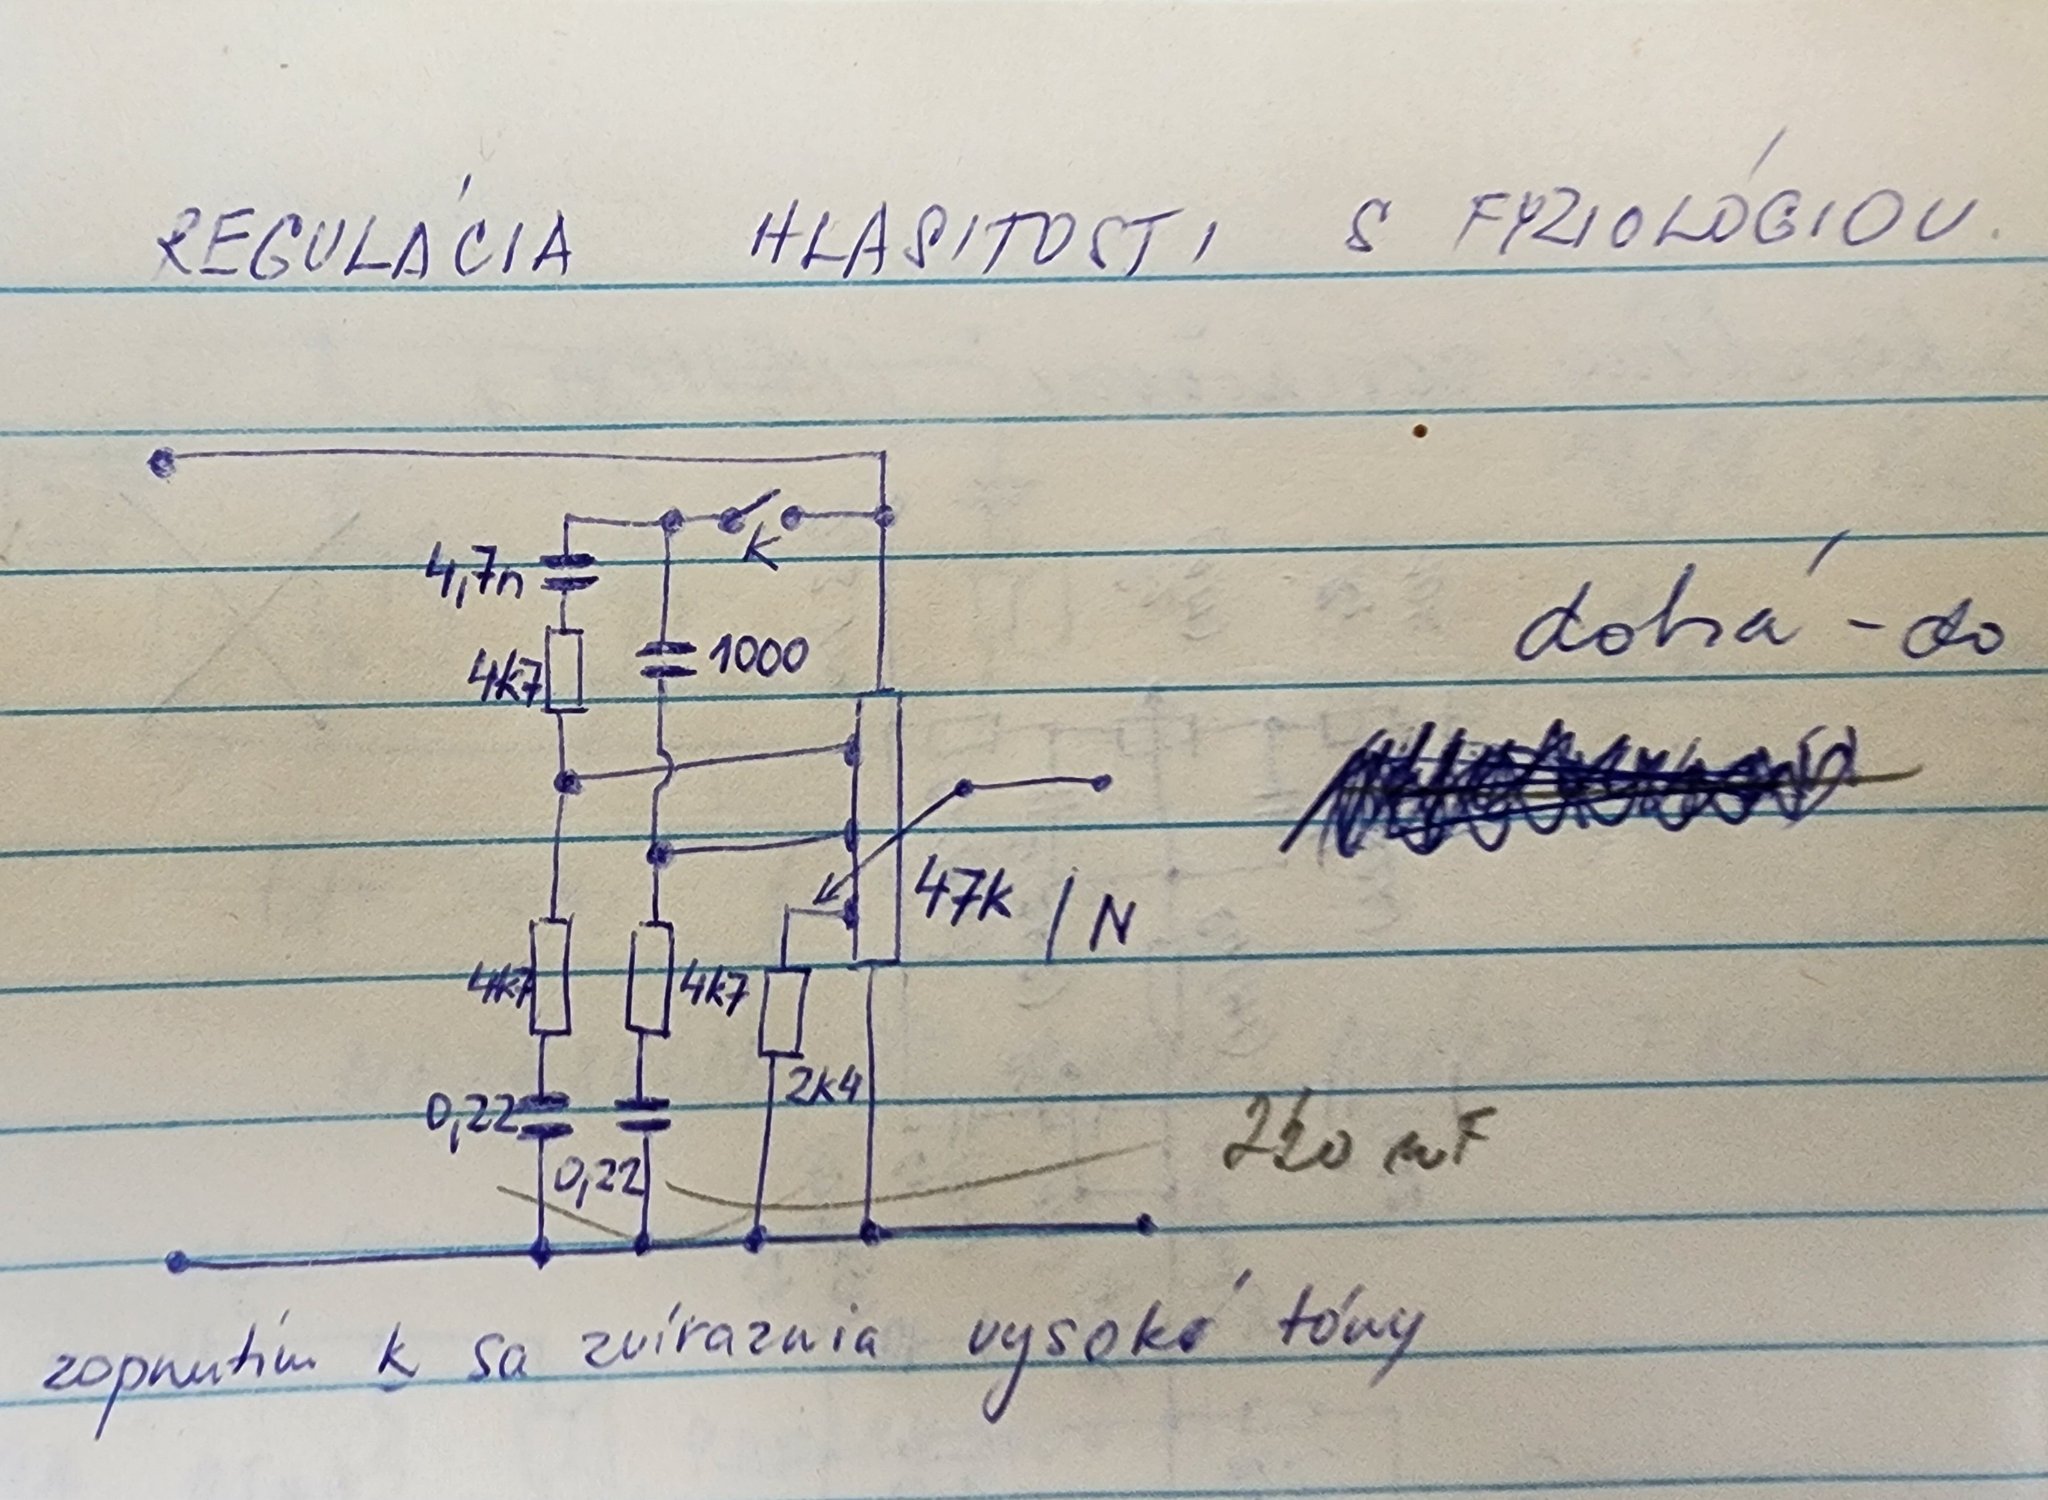 REGULÁCIA HLASITOSTI S FYZIOLÓGIOU.
K
4,7n
4k7
1000
dobrá - do
47k / N
4k7
4k7
2k4
0,22
0,22
220 mF
zopnutím k sa zvíraznia vysoké tóny